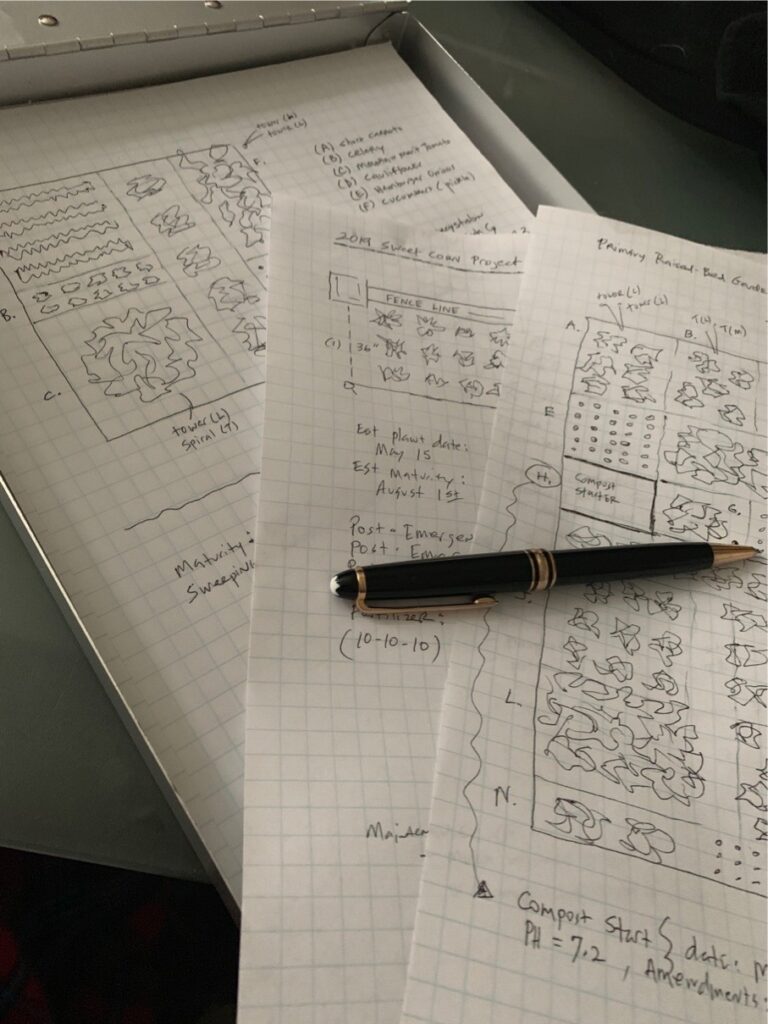 tower (M)
tower (L)
F.
(A) Short Carrots
(B) Celery
(C) Mountain Merit Tomato
(D) Cauliflower
(E) Hamburger
(F) Cucumbers (pickle)
B.
C.
tower (L)
Spiral (T)
Maturity:
Sweeping
Sweet Corn Project
FENCE LINE
(1) 36"
Est plant date:
May 15
Est Maturity:
August 1st
Post-Emergen
Post-Emerge
Fertilizer:
(10-10-10)
Primary Raised-Bed Garde
tower (L)
tower (L)
T(L) T(M)
A.
B.
E
H.
Compost
Starter
G.
L.
N.
Compost Start } date: M
PH = 7.2, Amendments: